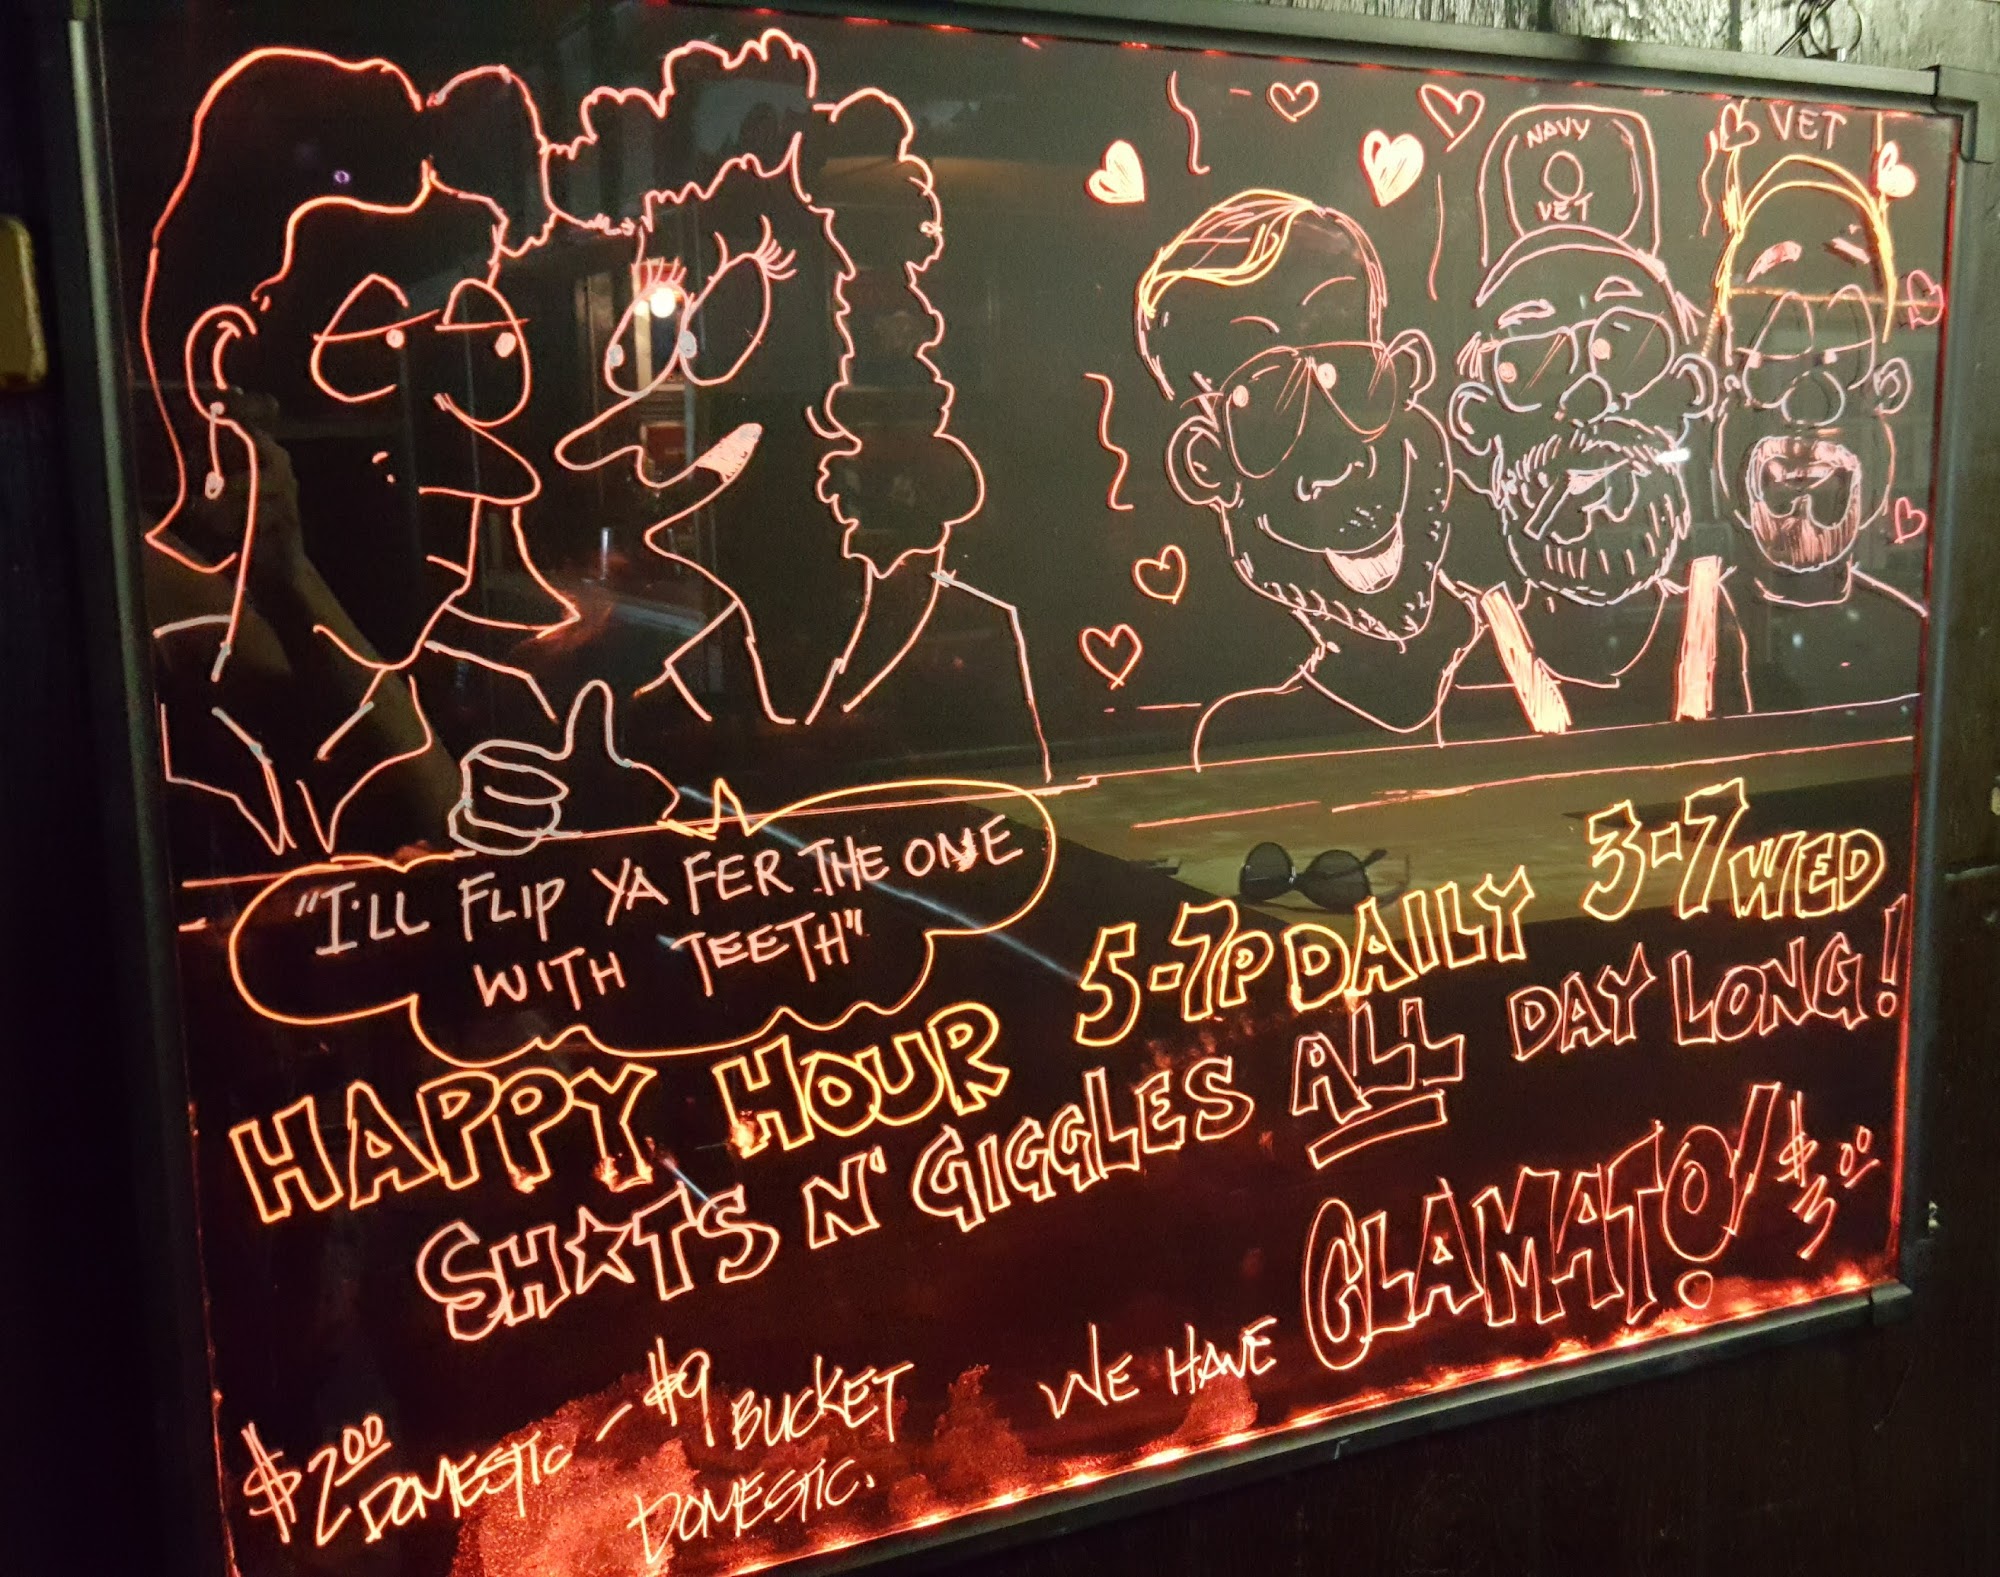 NAVY
VET
VET
"I'LL FLIP YA FER THE ONE
WITH TEETH"
HAPPY HOUR 5-7P DAILY 3-7 WED
SH★TS N' GIGGLES ALL DAY LONG!
WE HAVE CLAMATO! $3.00
$2.00 DOMESTIC - $9 BUCKET
DOMESTIC.